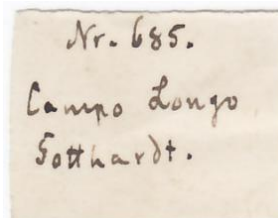 Nr. 685.
Campo Longo
Gotthardt.